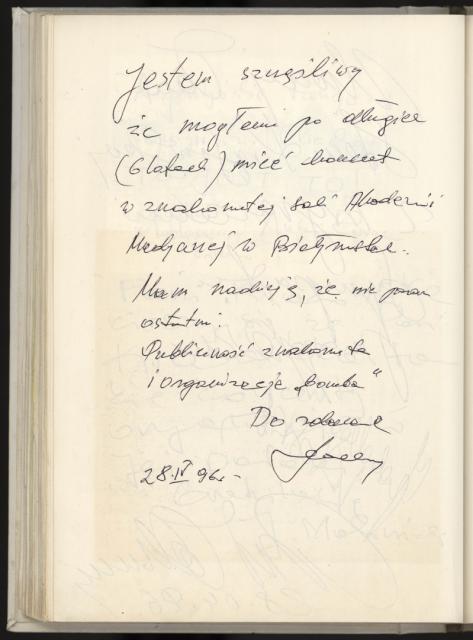 Jestem szczęśliwy
że mogłem po długich
(6 latach) mieć koncert
w znakomitej sali Akademii
Medycznej w Białymstoku.
Mam nadzieję, że nie po raz
ostatni.
Publiczność znakomita
i organizacja „bomba"
Do zobaczenia
28.IV 96r.